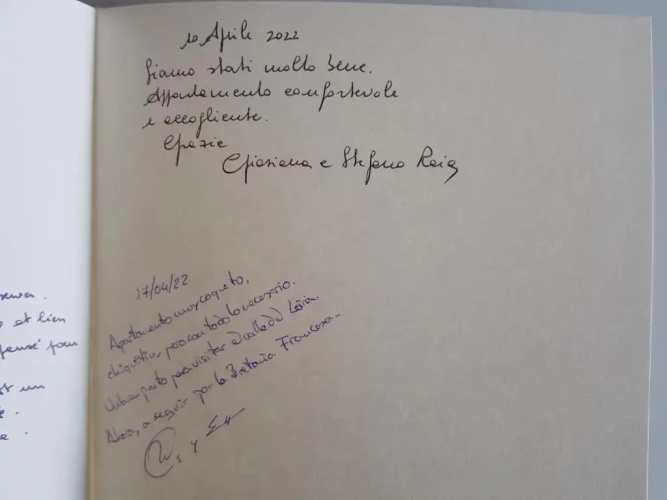 10 Aprile 2022
Siamo stati molto bene.
Appartamento confortevole
e accogliente.
Grazie
e Stefano
17/04/22
Apartamento muy coqueto,
chiquitín, pero con todo lo necesario.
Un buen punto para visitar el valle del Loira.
Ahora, a seguir por la Bretaña Francesa...
y
et bien
pensé pour
est un